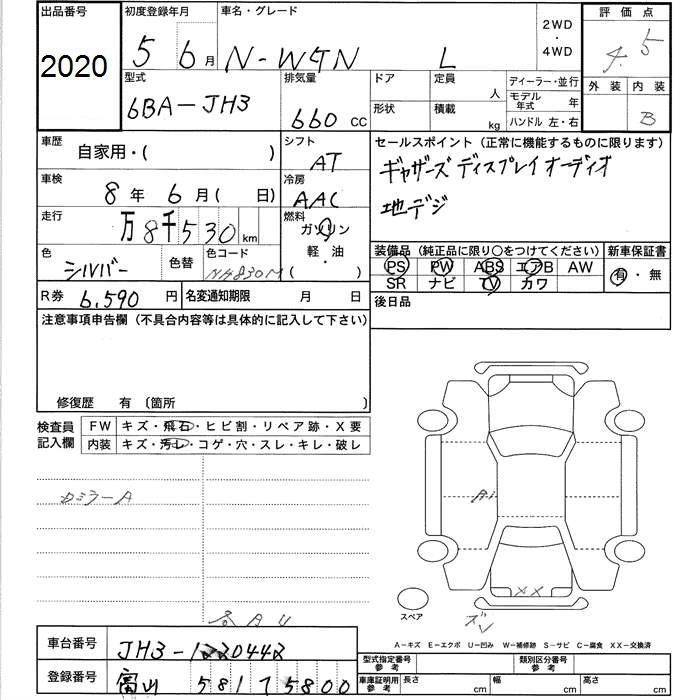 出品番号 初度登録年月 車名・グレード 2WD ・ 4WD 評価点
2020 5年 6月 N-WGN L 4.5
型式 排気量 ドア 定員 人 ディーラー・並行 外装 内装
6BA-JH3 660 CC 形状 積載 kg モデル年式 年 ハンドル 左・右 B
車歴 自家用・( ) シフト AT セールスポイント（正常に機能するものに限ります）
車検 8年 6月( 日) 冷房 AAC ギャザーズ ディスプレイオーディオ
地デジ
走行 万8千530km 燃料 ガソリン 軽・油 ( )
色 シルバー 色替 色コード
装備品（純正品に限り○をつけてください） 新車保証書
PS PW ABS エアB AW 有・無
SR ナビ TV カワ
R券 6,590円 名変通知期限 月 日 後日品
注意事項申告欄（不具合内容等は具体的に記入して下さい）
修復歴 有 〔箇所 〕
検査員記入欄 FW キズ・飛石・ヒビ割・リペア跡・X要
内装 キズ・汚レ・コゲ・穴・スレ・キレ・破レ
カミラーA
A1
XX
スペア
A－キズ E－エクボ U－凹み W－補修跡 S－サビ C－腐食 XX－交換済
車台番号
登録番号 富山 581 7 5800
型式指定番号 参考 類別区分番号 参考
車庫証明用 参考 長さ cm 幅 cm 高さ cm